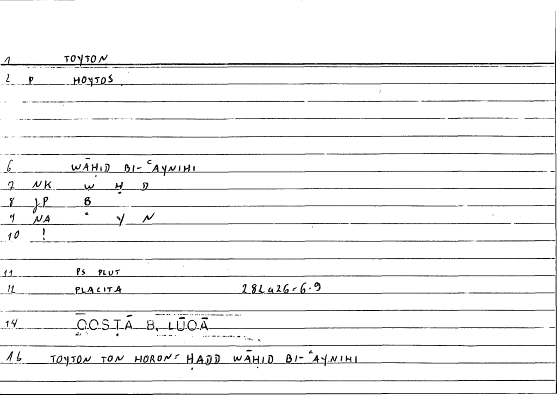 1 TOYTON
2 P HOYTOS
6 WĀḤID BI-ʿAYNIHI
7 NK W Ḥ D
8 JP B
9 NA ʿ Y N
10 !
11 PS PLUT
12 PLACITA 282a26-6.9
14 QOSṬĀ B. LŪQĀ
16 TOYTON TON HORON: ḤADD WĀḤID BI-ʿAYNIHI